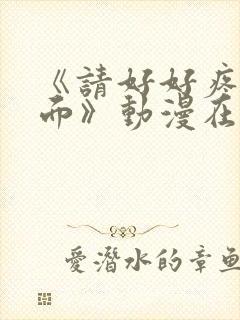 《請好好疼
而》動漫在
愛潛水的章魚